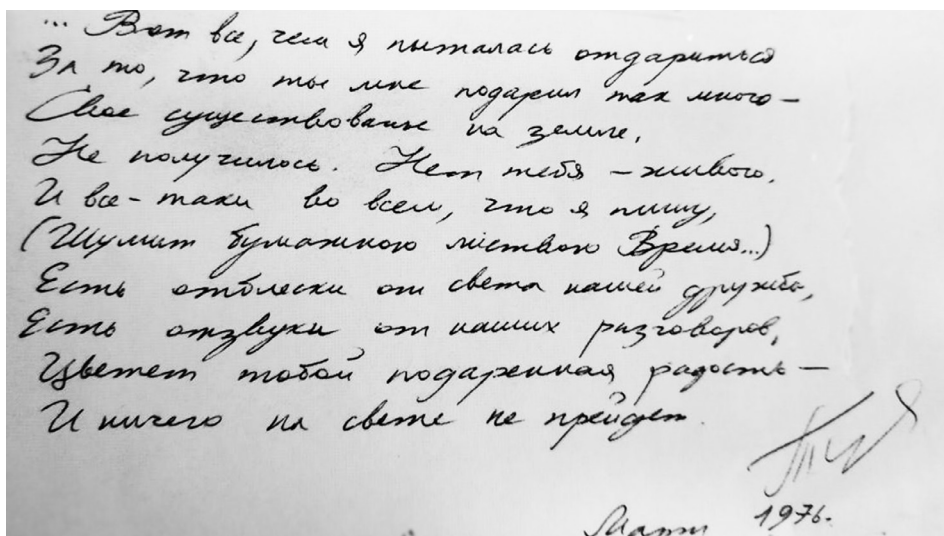 ... Вот все, чем я пыталась отдариться
За то, что ты мне подарил так много —
Свое существованье на земле.
Не получилось. Нет тебя — живого.
И все-таки во всем, что я пишу,
(Шумит бумажною листвою Время...)
Есть отблески от света нашей дружбы,
Есть отзвуки от наших разговоров,
Цветет тобой подаренная радость —
И ничего на свете не пройдет.
Март 1976.